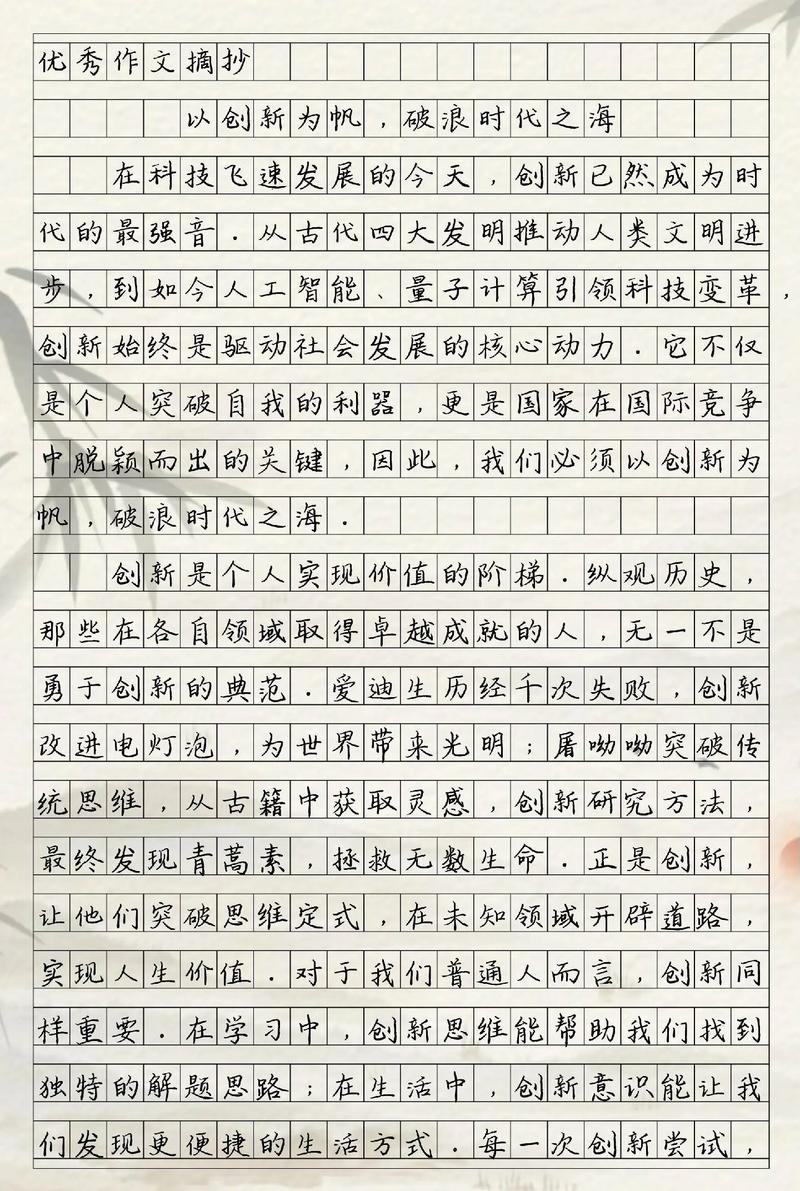 优秀作文摘抄
以创新为帆，破浪时代之海
在科技飞速发展的今天，创新已然成为时
代的最强音．从古代四大发明推动人类文明进
步，到如今人工智能、量子计算引领科技变革，
创新始终是驱动社会发展的核心动力．它不仅
是个人突破自我的利器，更是国家在国际竞争
中脱颖而出的关键，因此，我们必须以创新为
帆，破浪时代之海．
创新是个人实现价值的阶梯．纵观历史，
那些在各自领域取得卓越成就的人，无一不是
勇于创新的典范．爱迪生历经千次失败，创新
改进电灯泡，为世界带来光明；屠呦呦突破传
统思维，从古籍中获取灵感，创新研究方法，
最终发现青蒿素，拯救无数生命．正是创新，
让他们突破思维定式，在未知领域开辟道路，
实现人生价值．对于我们普通人而言，创新同
样重要．在学习中，创新思维能帮助我们找到
独特的解题思路；在生活中，创新意识能让我
们发现更便捷的生活方式．每一次创新尝试，